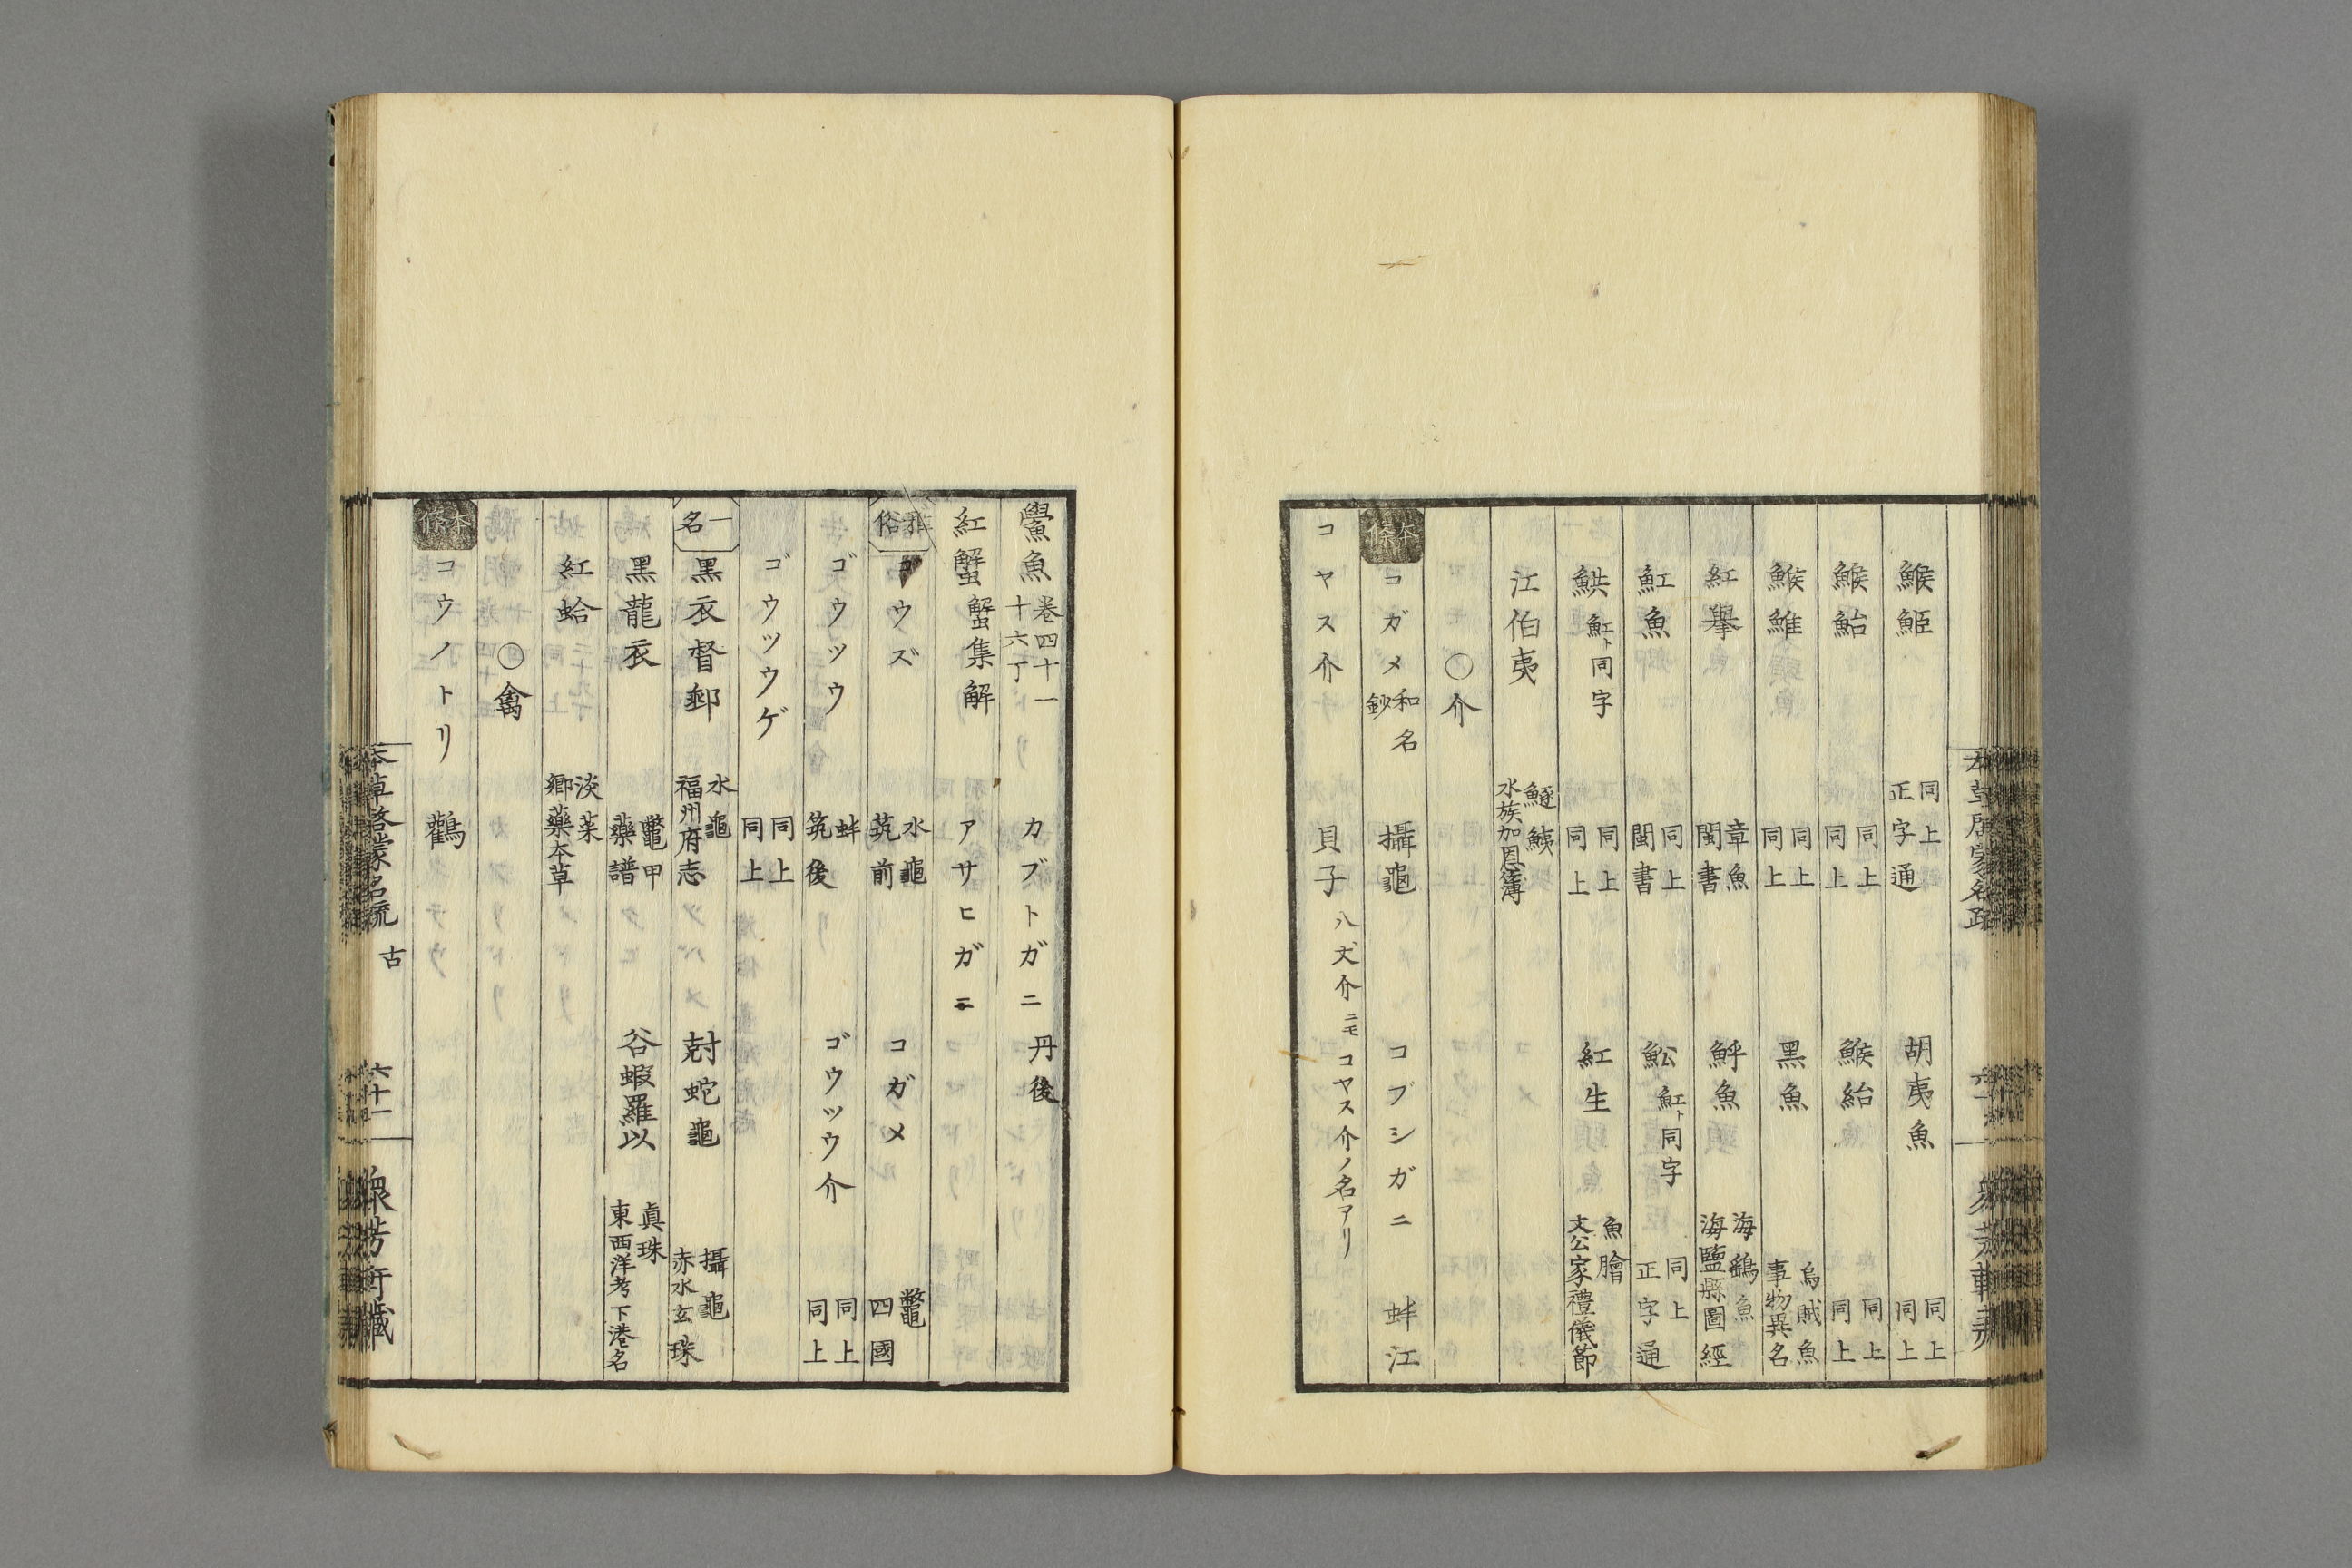 鯸䱌　同上正字通　胡夷魚　同上同上
鯸鮐　同上同上　鯸紿　同上同上
鯸鯡　同上同上　黑魚　烏賊魚事物異名
紅擧　章魚閩書　鮃魚　海鷂魚海鹽縣圖經
魟魚　同上閩書　鮐魟ト同字　同上正字通
鉷魟ト同字　同上同上　紅生　魚膾文公家禮儀節
江伯夷　鱁鮧水族加恩簿
○介
本條　コガメ和名鈔　攝龜　コブシガニ　蚌江
コヤス介　貝子八丈介ニモコヤス介ノ名アリ
鱟魚卷四十一十六丁　カブトガニ丹後
紅蟹蟹集解　アサヒガニ
雅俗　ゴウズ　水龜筑前　コガメ　鼈四國
ゴウツウ　蚌筑後　ゴウツウ介　同上同上
ゴウツウゲ　同上同上
一名　黑衣督郵　水龜福州府志　尅蛇龜　攝龜赤水玄珠
黑龍衣　鼈甲藥譜　谷蝦羅以　眞珠東西洋考下港名
紅蛤　淡菜鄉藥本草
○禽
本條　コウノトリ　鸛
本草啓蒙名疏　古　六十一　衆芳軒藏